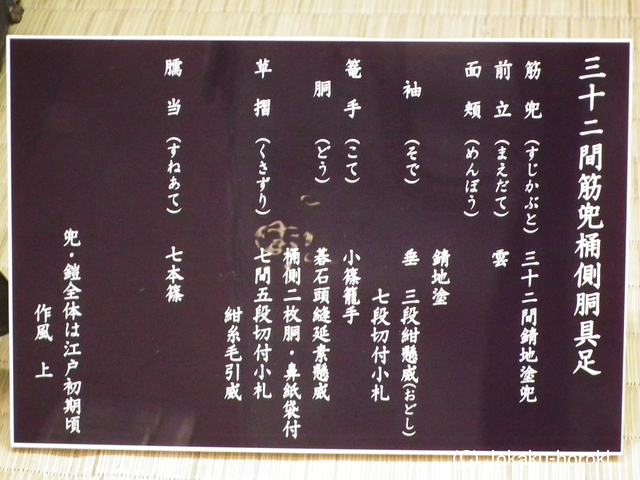 三十二間筋兜桶側胴具足
筋兜（すじかぶと）三十二間錆地塗兜
前立（まえだて）雲
面頬（めんぼう）
錆地塗
袖（そで）垂 三段紺懸威（おどし）
七段切付小札
篭手（こて）小篠籠手
胴（どう）碁石頭縫延素懸威
桶側二枚胴・鼻紙袋付
草摺（くさずり）七間五段切付小札
紺糸毛引威
臑当（すねあて）七本篠
兜・鎧全体は江戸初期頃
作風 上
(C) Jokaku-horoki